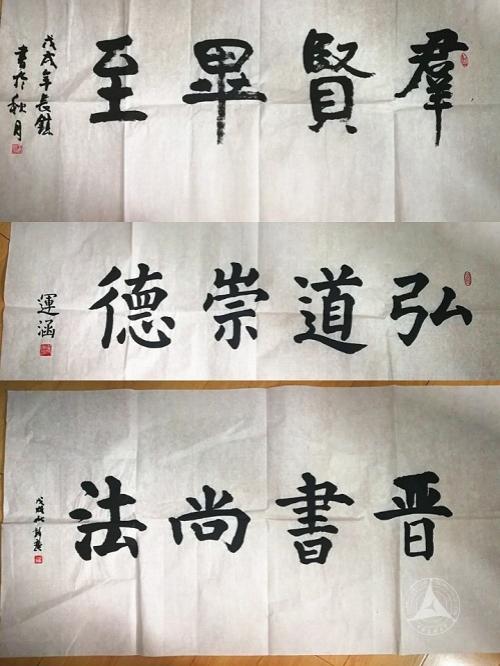 羣賢畢至
戊戌年長鎮
書於秋月
弘道崇德
運涵
晋書尚法